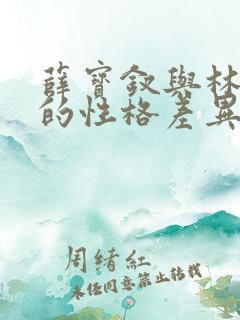 薛寶釵與林
的性格差異
周緒紅
未经同意禁止转载